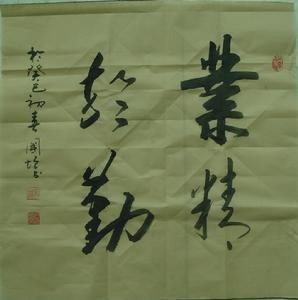 業精
於勤
於癸巳初春國